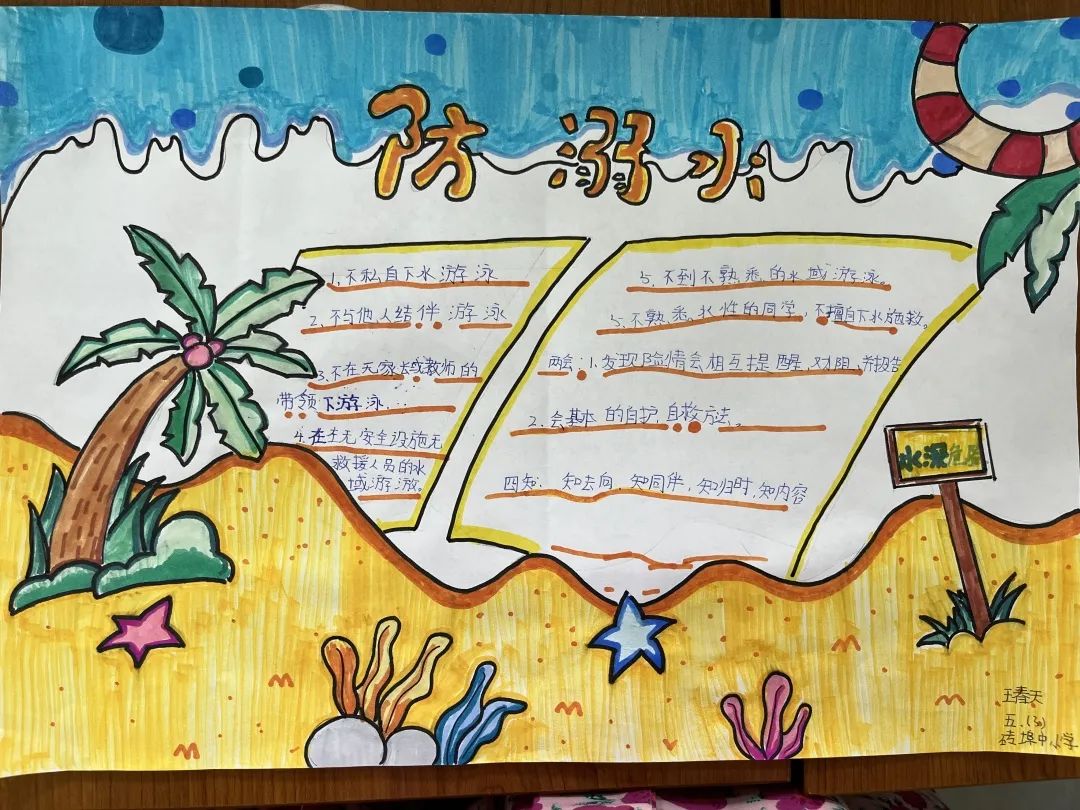 防溺水
1,不私自下水游泳
2、不与他人结伴游泳
3、不在无家长或教师的
带领下游泳、
4、在无安全设施无
救援人员的水
域游游。
5、不到不熟悉的水域游泳。
5、不熟悉水性的同学,不擅自下水施救。
两会:1、发现险情会相互提醒、对阻、并报告
2、会基本的自护、自救方法、
四知: 知去向、知同伴,知归时,知内容
水深危险
王春天
五.(3)
砖埠中心小学